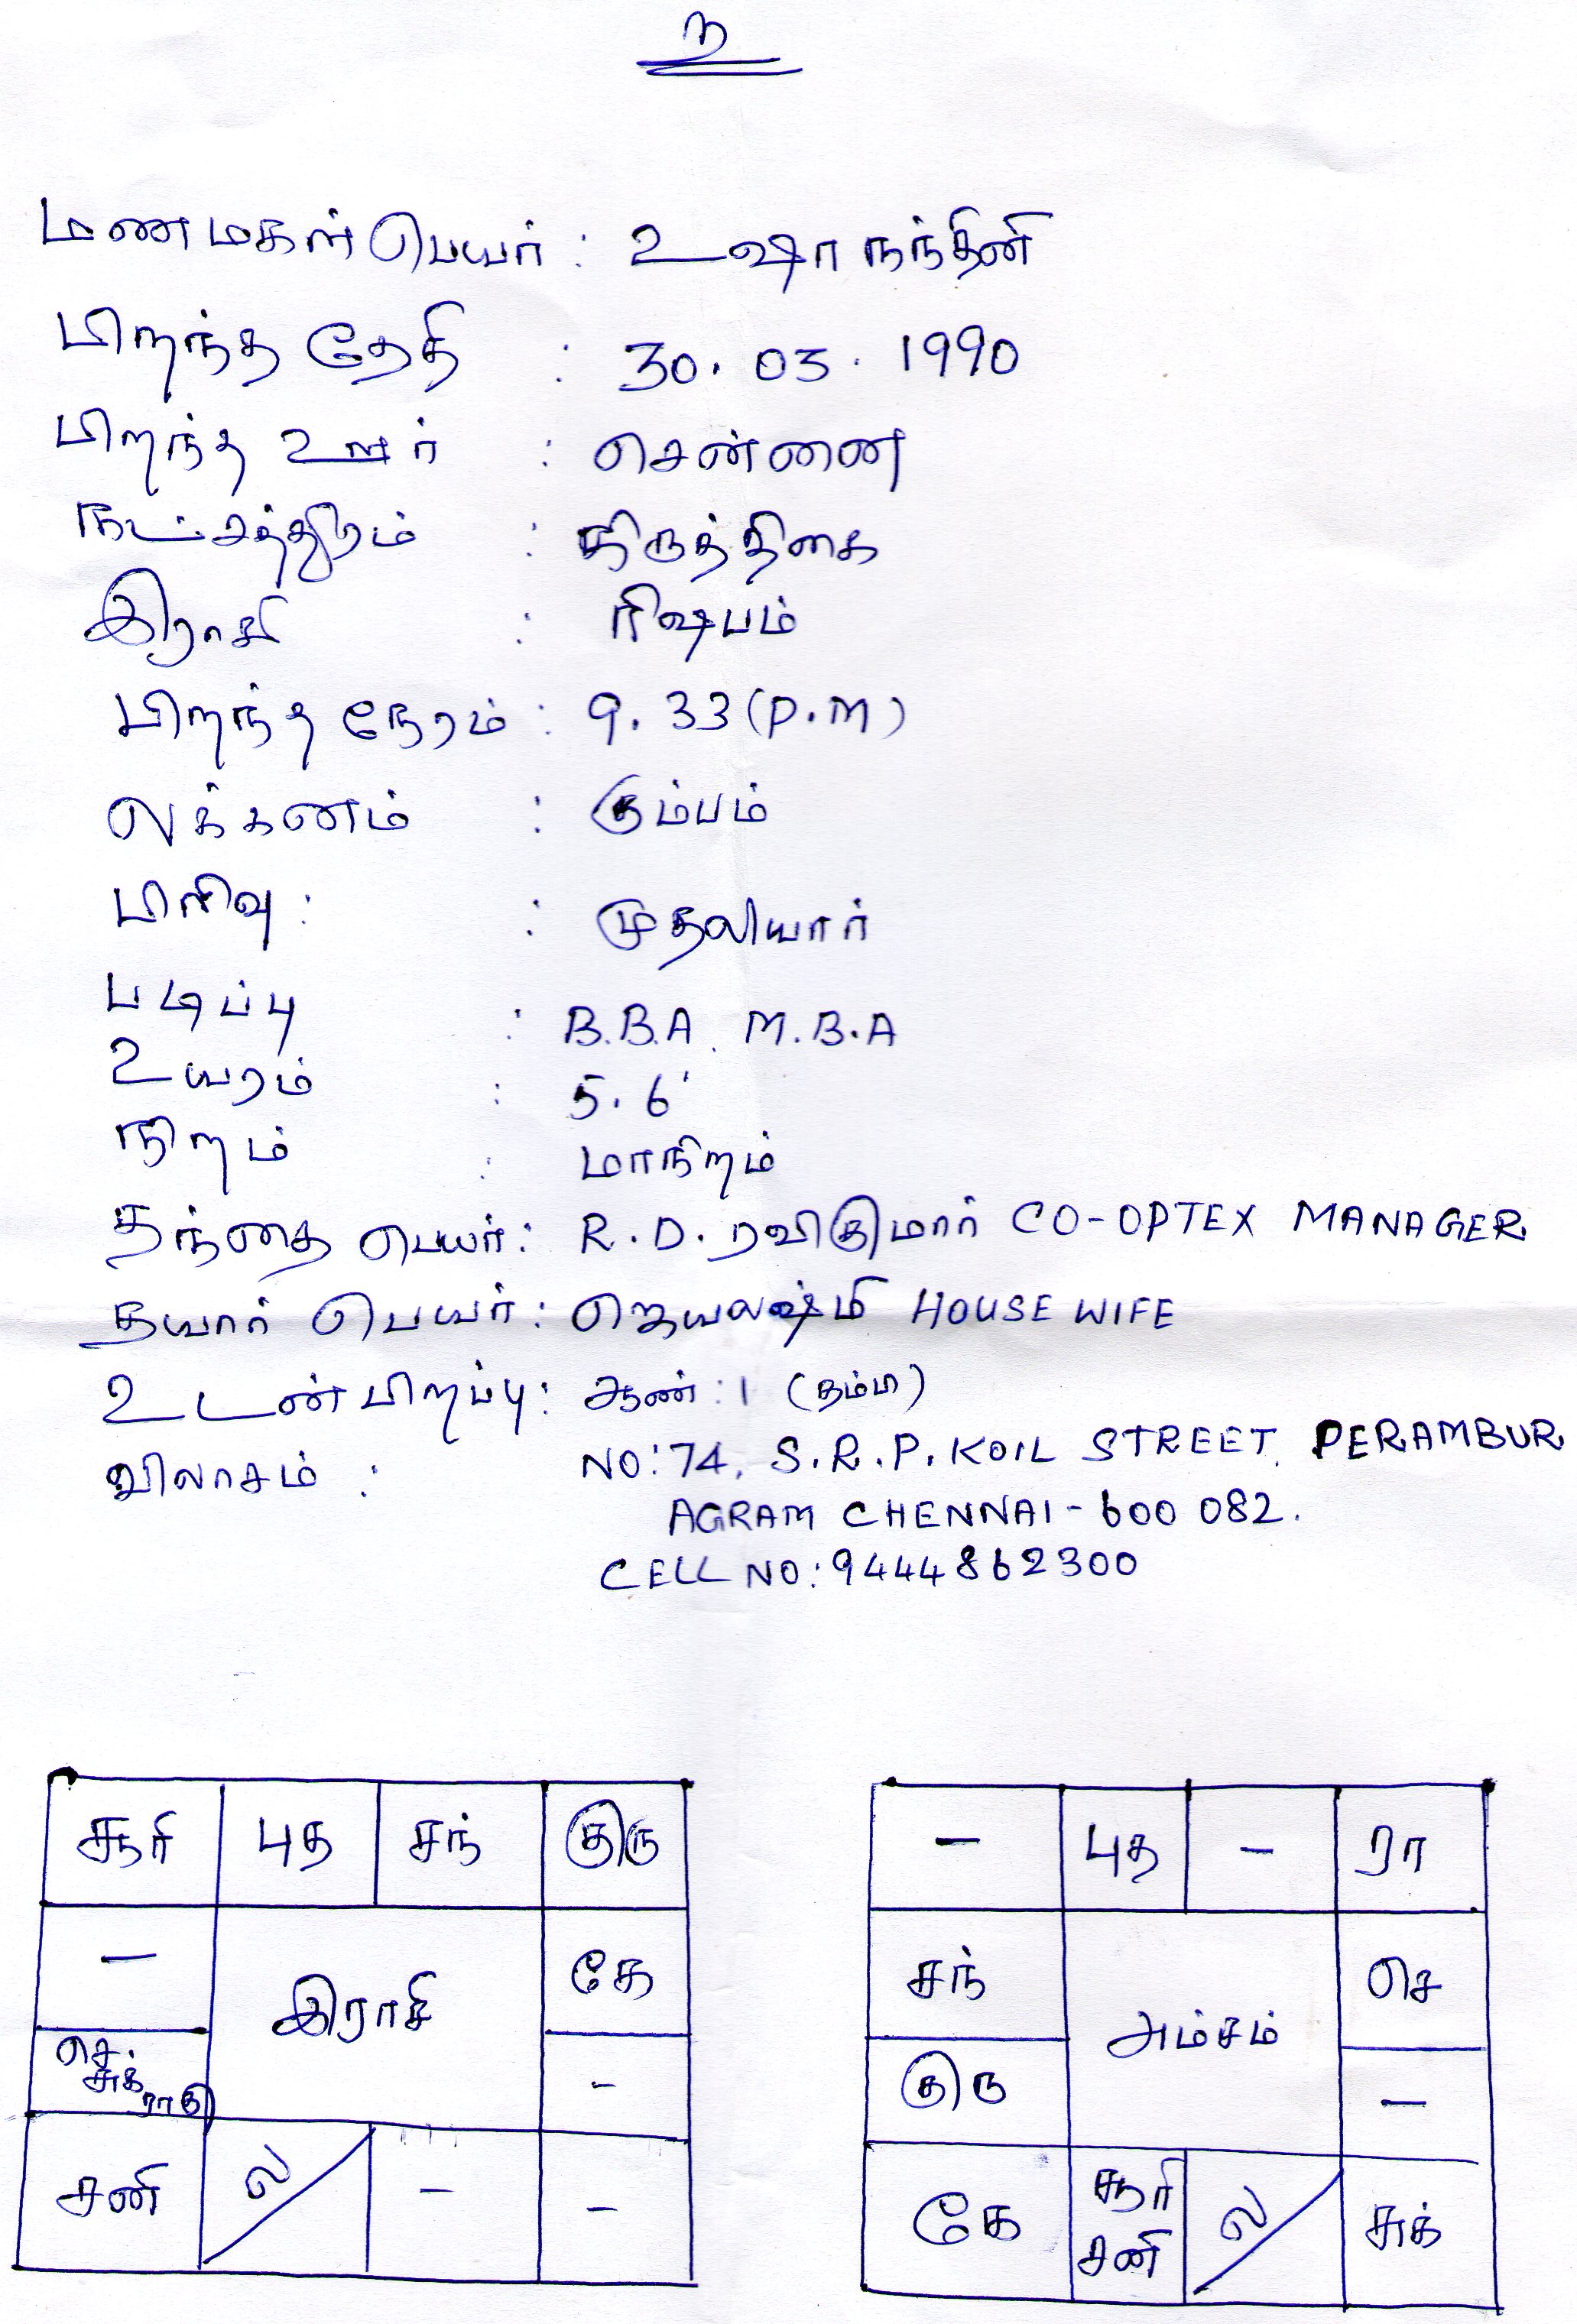 உ
மணமகள் பெயர் : உஷா நந்தினி
பிறந்த தேதி : 30.03.1990
பிறந்த ஊர் : சென்னை
நட்சத்திரம் : கிருத்திகை
இராசி : ரிஷபம்
பிறந்த நேரம் : 9.33 (P.M)
லக்கனம் : கும்பம்
பிரிவு : : முதலியார்
படிப்பு : B.B.A. M.B.A
உயரம் : 5.6'
நிறம் : மாநிறம்
தந்தை பெயர் : R.D. ரவிகுமார் CO-OPTEX MANAGER.
தயார் பெயர் : ஜெயலஷ்மி HOUSE WIFE
உடன்பிறப்பு : ஆண் : 1 (தம்பி)
விலாசம் : NO: 74, S.R.P. KOIL STREET, PERAMBUR
AGRAM CHENNAI - 600 082.
CELL NO: 9444862300
சூரி புத சந் குரு
— கே
இராசி
செ. சுக் ராகு -
சனி ல - -
- புத - ரா
சந் செ
அம்சம்
குரு -
கே சூரி சனி ல சுக்